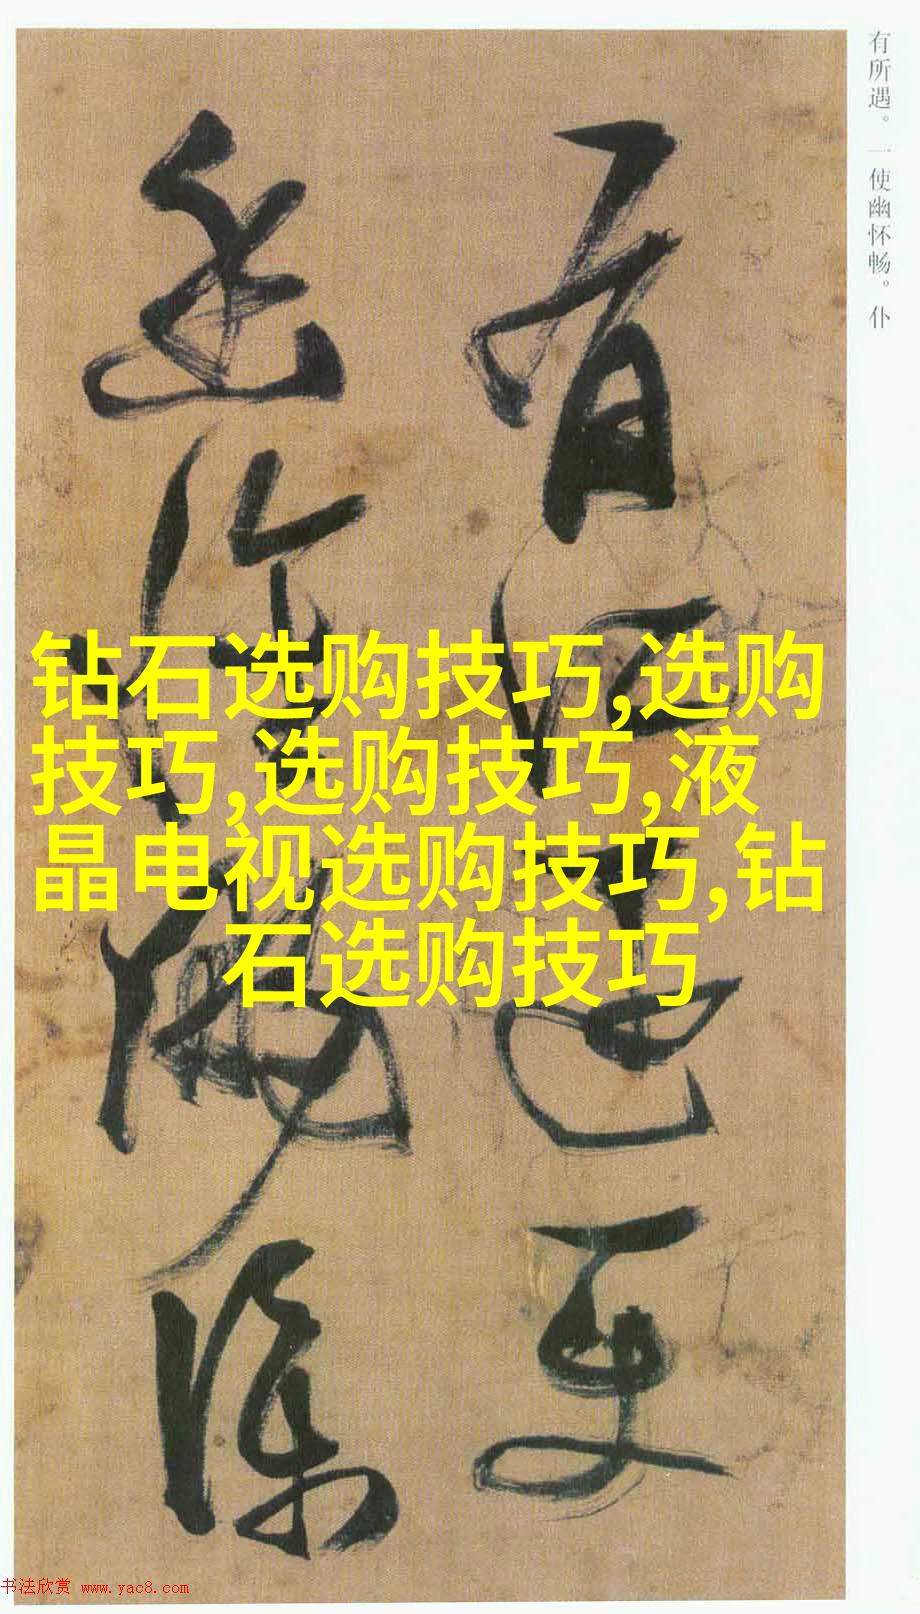 有所遇。一使幽怀畅。仆
有所遇使
幽懷暢僕
钻石选购技巧,选购
技巧,选购技巧,液
晶电视选购技巧,钻
石选购技巧
书法欣赏 www.yac8.com